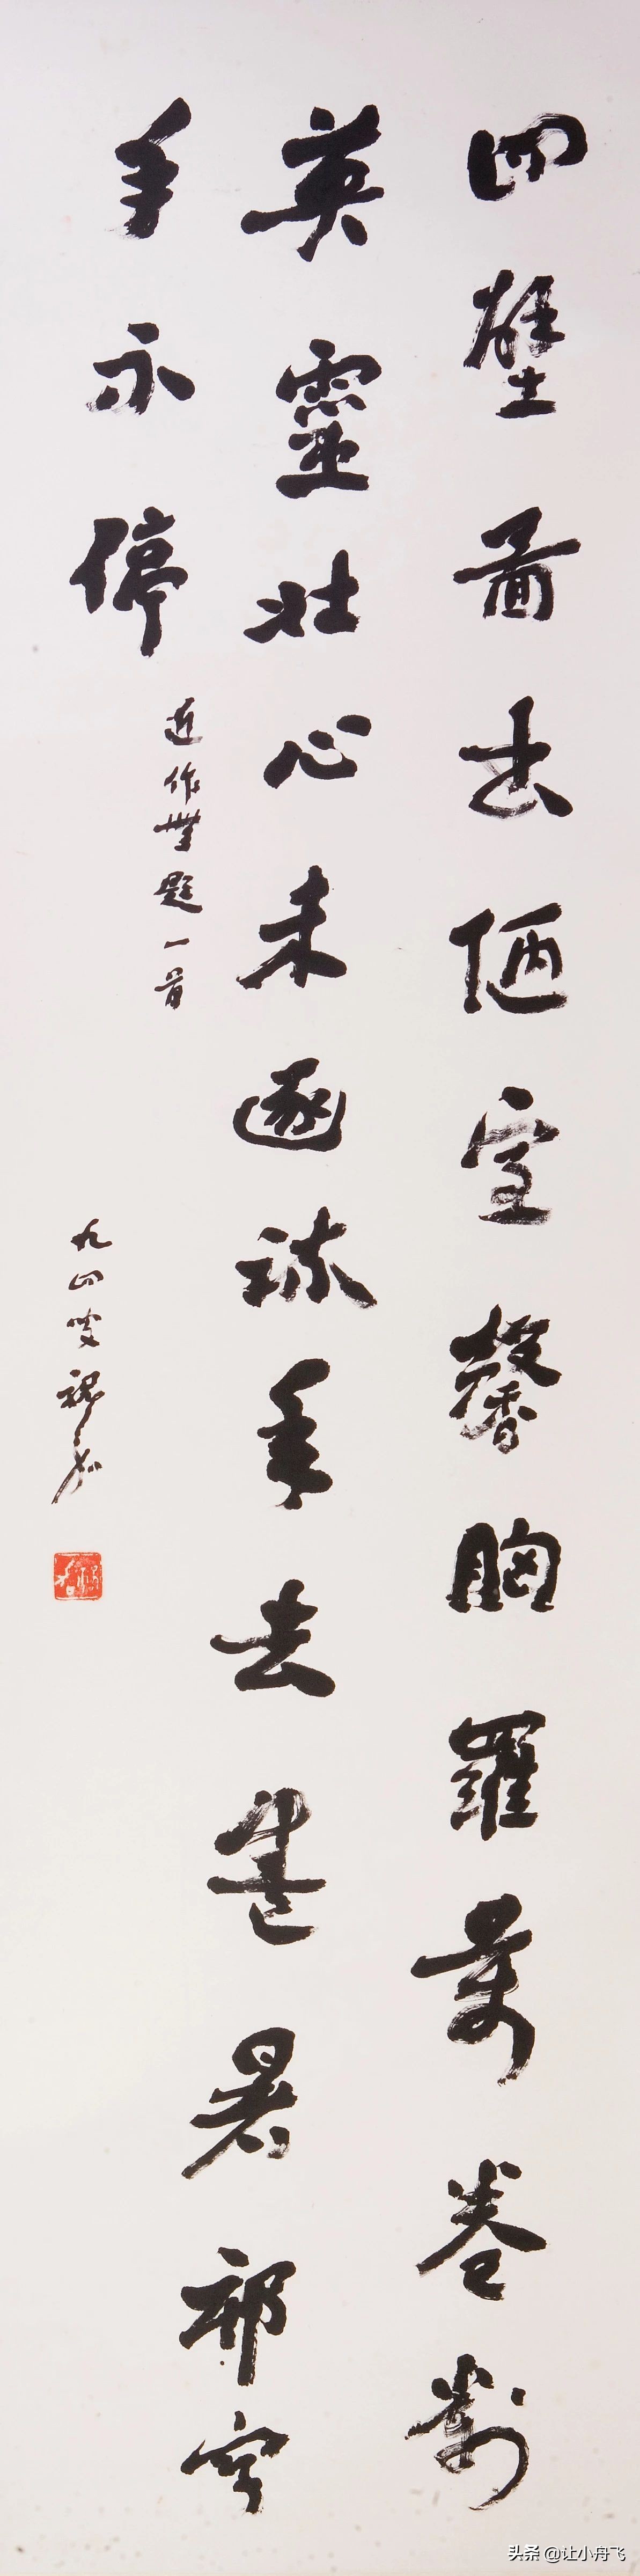 四壁图书陋室馨胸罗万卷对
英灵壮心未逐流年去盛暑祁寒
手不停
近作无题一首
九四叟
头条 @让小舟飞